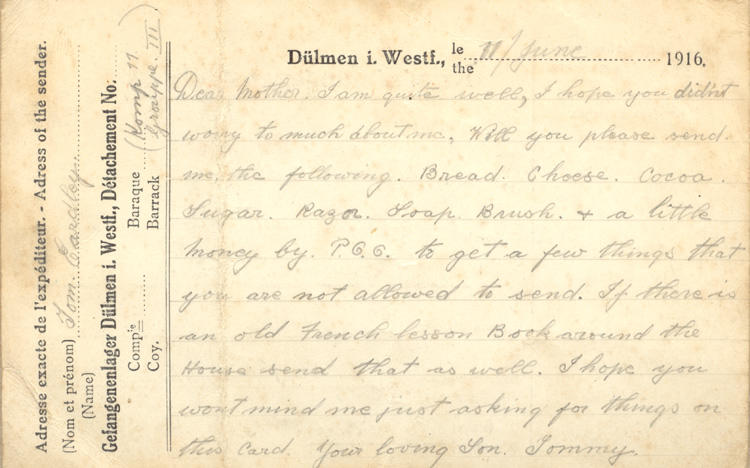 Adresse exacte de l'expéditeur. - Adress of the sender.
(Nom et prénom) Tom. Eardley.
(Name)
Gefangenenlager Dülmen i. Westf., Détachement No:
Baraque (Komp n
Barrack (Grouppe. III.
Comp:ie
Coy.
Dülmen i. Westf., le
the 11/June 1916.
Dear Mother. I am quite well, I hope you did'nt
worry to much about me, Will you please send
me, the following. Bread. Cheese. Cocoa.
Sugar. Razor. Soap. Brush. & a little
Money by. P.O.O. to get a few things that
you are not allowed to send. If there is
an old French lesson Book around the
House send that as well. I hope you
wont mind me just asking for things on
this Card. Your loving Son. Tommy.